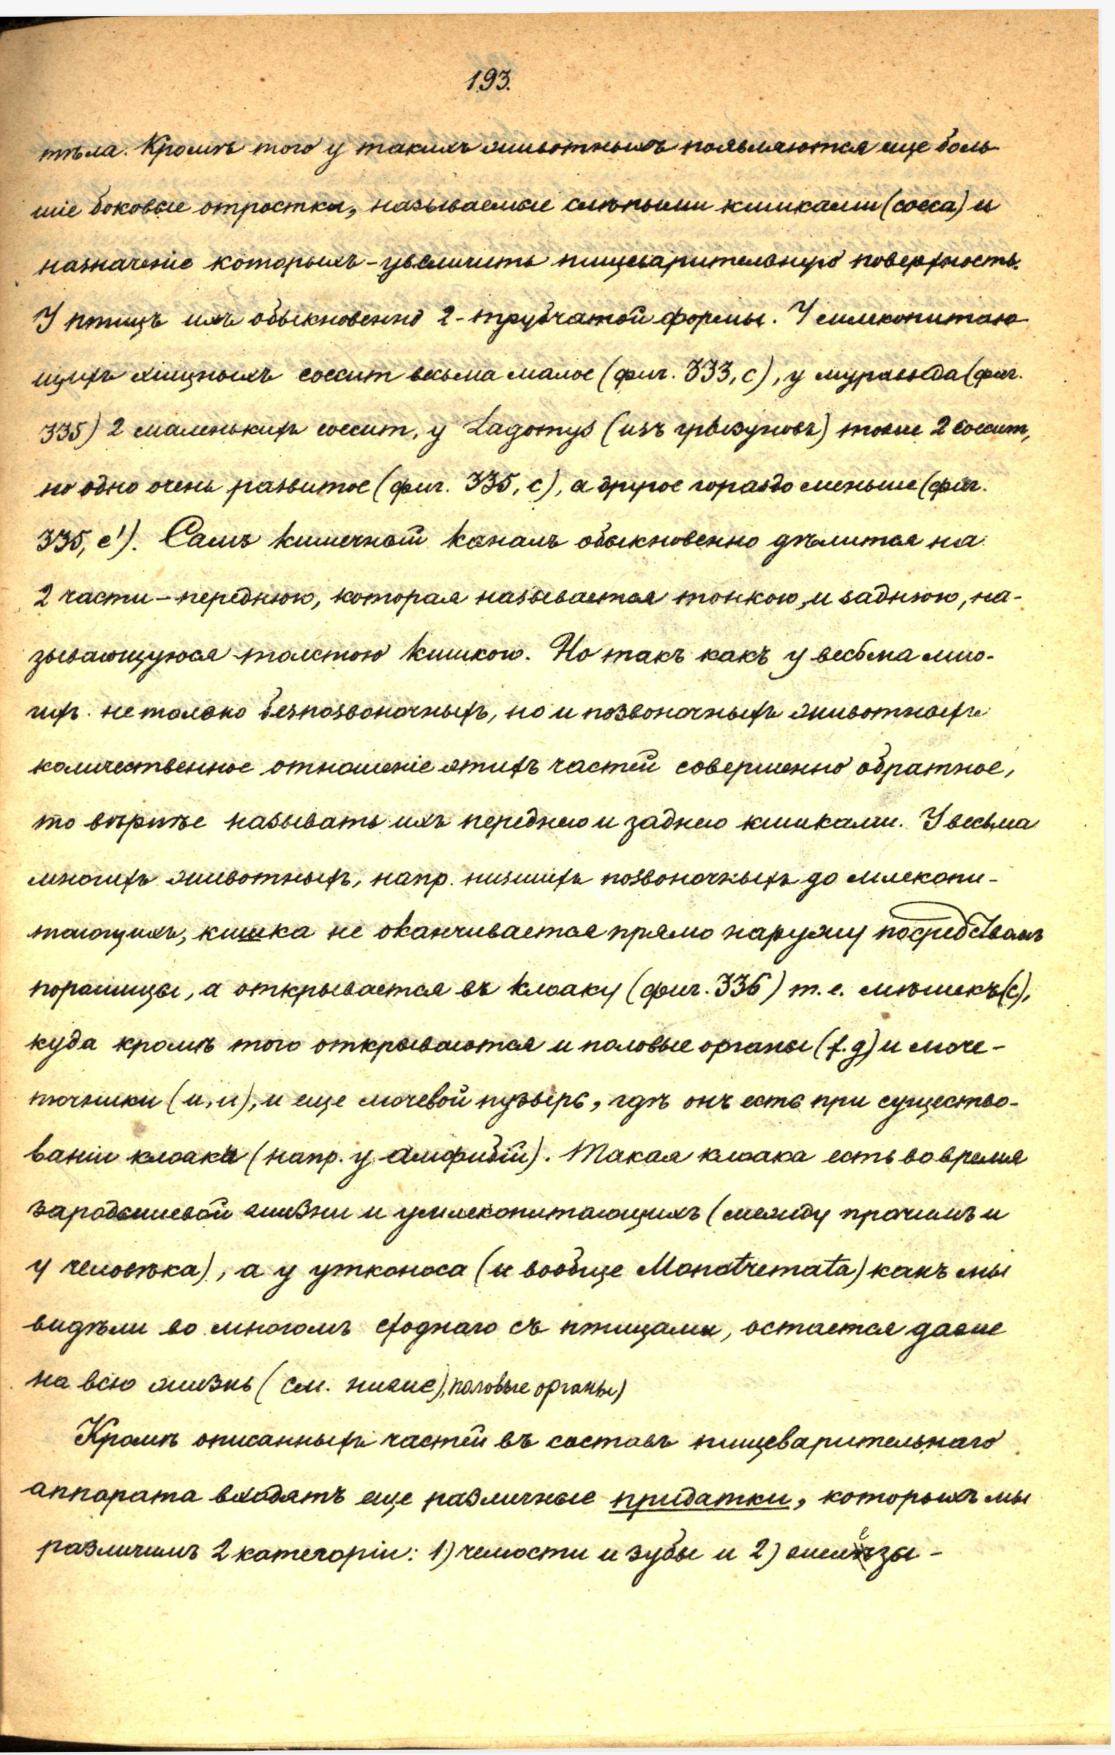 193.
тѣла. Кромѣ того у такихъ животныхъ появляются еще боль-
шіе боковые отростки, называемые слѣпыми кишками (coeca) и
назначеніе которыхъ – увеличить пищеварительную поверхность.
У птицъ ихъ обыкновенно 2 – трубчатой формы. У млекопитаю-
щихъ хищныхъ coecum весьма малое (фиг. 333, c), у муравьѣда (фиг.
335) 2 маленькихъ coecum, у Lagomys (изъ грызуновъ) тоже 2 coecum,
но одно очень развитое (фиг. 335, c), а другое гораздо меньше (фиг.
335, c'). Самъ кишечный каналъ обыкновенно дѣлится на
2 части – переднюю, которая называется тонкою, и заднюю, на-
зывающуюся толстою кишкою. Но такъ какъ у весьма мно-
гихъ не только безпозвоночныхъ, но и позвоночныхъ животныхъ
количественное отношеніе этихъ частей совершенно обратное,
то вѣрнѣе называть ихъ переднею и заднею кишками. У весьма
многихъ животныхъ, напр. низшихъ позвоночныхъ до млекопи-
тающихъ, кишка не оканчивается прямо наружу посредствомъ
порошицы, а открывается въ клоаку (фиг. 336) т. е. мѣшекъ (c),
куда кромѣ того открываются и половые органы (f. g) и моче-
точники (u, u), и еще мочевой пузырь, гдѣ онъ есть при существо-
ваніи клоаки (напр. у амфибій). Такая клоака есть во время
зародышевой жизни и у млекопитающихъ (между прочимъ и
у человѣка), а у утконоса (и вообще Monotremata) какъ мы
видѣли во многомъ сходнаго съ птицами, остается даже
на всю жизнь (см. ниже), половые органы)
Кромѣ описанныхъ частей въ составъ пищеварительнаго
аппарата входятъ еще различные придатки, которыхъ мы
различимъ 2 категоріи: 1) челюсти и зубы и 2) железы –